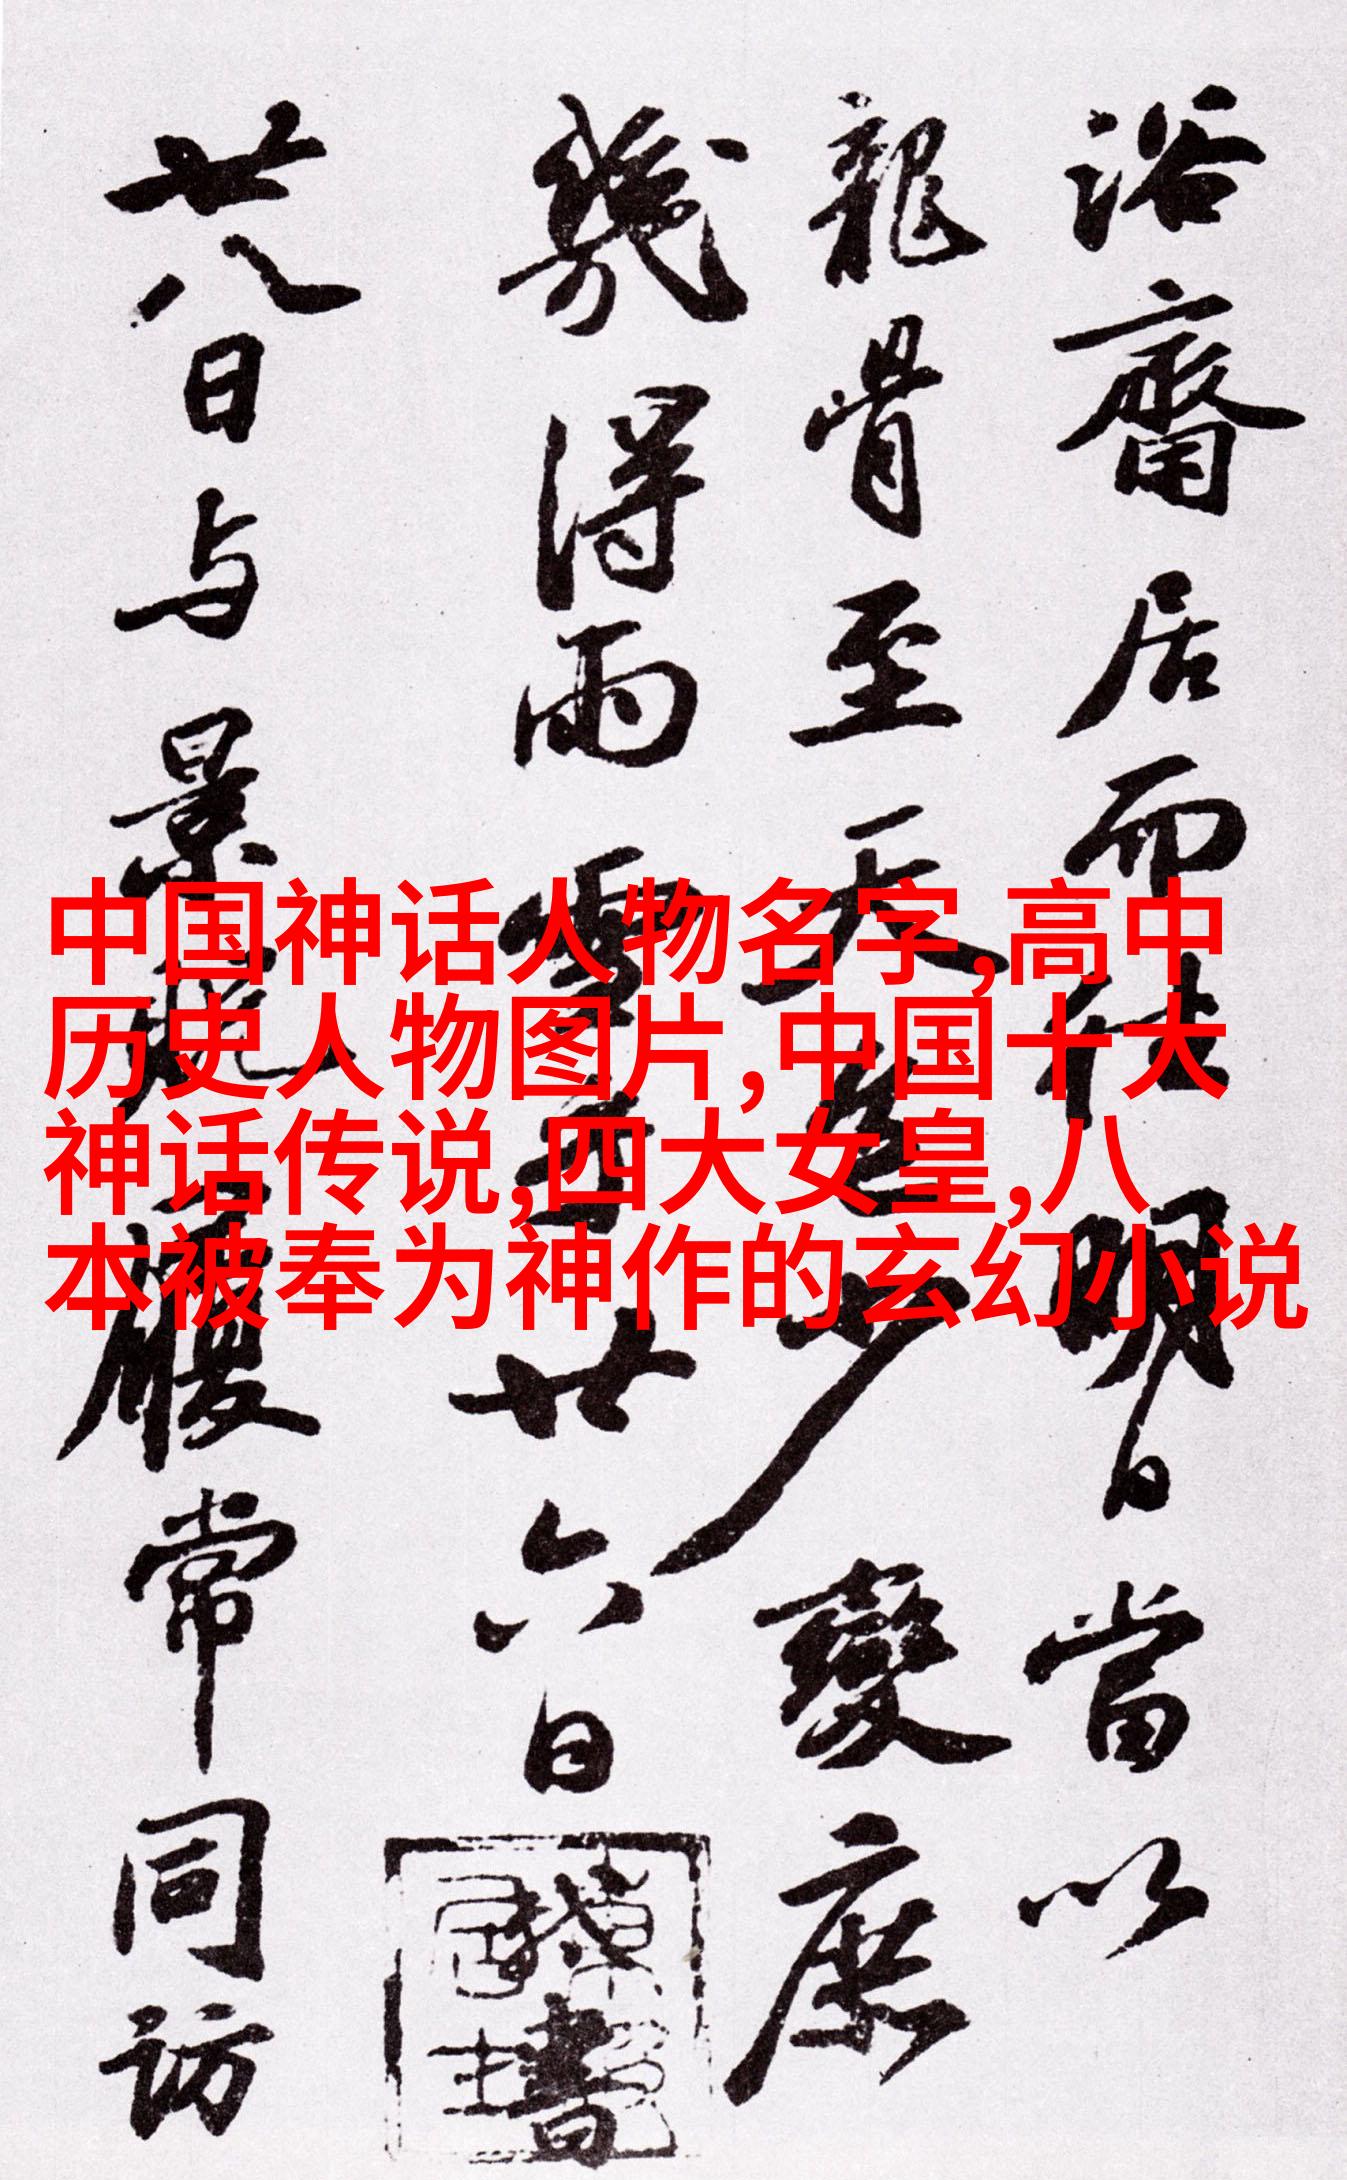 浴齋居而往明日當以
龍骨至天章少變庶
幾得雨雪乎廿六日
書
廿八日与景瞻履常同訪
中国神话人物名字,高中
历史人物图片,中国十大
神话传说,四大女皇,八
本被奉为神作的玄幻小说